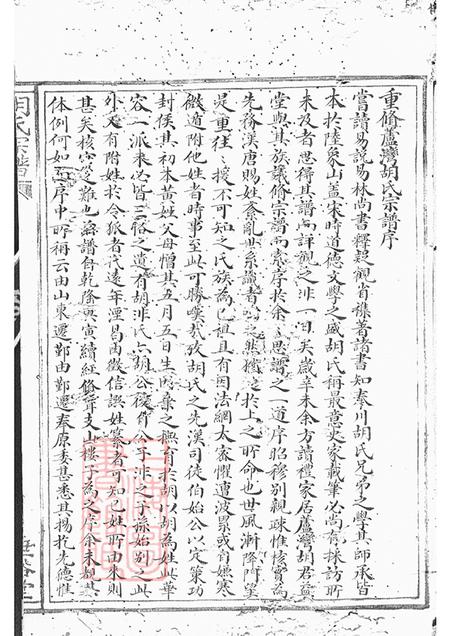 重修蘆灣胡氏宗譜序
嘗讀易說易林尚書釋觀省集著諸書知泰川胡氏兄弟之學其師承皆
本於陸象山蓋宋時道德文學之盛胡氏稱最意史家載筆必尚有採訪所
未及者思得其譜而詳觀之非一日矣歲辛未余方讀禮家居蘆灣胡君
堂與其族議修宗譜而序於余思譜之一道序昭穆別親疎惟核實為
先務漢唐賜姓紊亂世系識者之然猶之於上之所命也世風漸降阿
是重往授不可知之氏族為己祖且有因法網太密懼遭波累或有嫌寒
微適附他姓者時事至此可勝嘆哉攷胡氏之先漢司徒伯始公以定策功
封侯其初本黃姓父母憎其五月五日生時棄之撫育於胡以胡為姓此華
容一派未必皆三恪之遺有胡非氏亦胡公後有公子非之子孫始別此
外又有附姓於令狐者代遠年湮昌由徵信誤姓者可知己姓所由來則
甚矣核實之難也譜自乾隆庚寅續經修齊支山樓子為之序余未覩其
體例何如序中所稱云由山東遷鄞由鄞遷奉原委甚悉其揚扢先德惟
胡氏宗譜